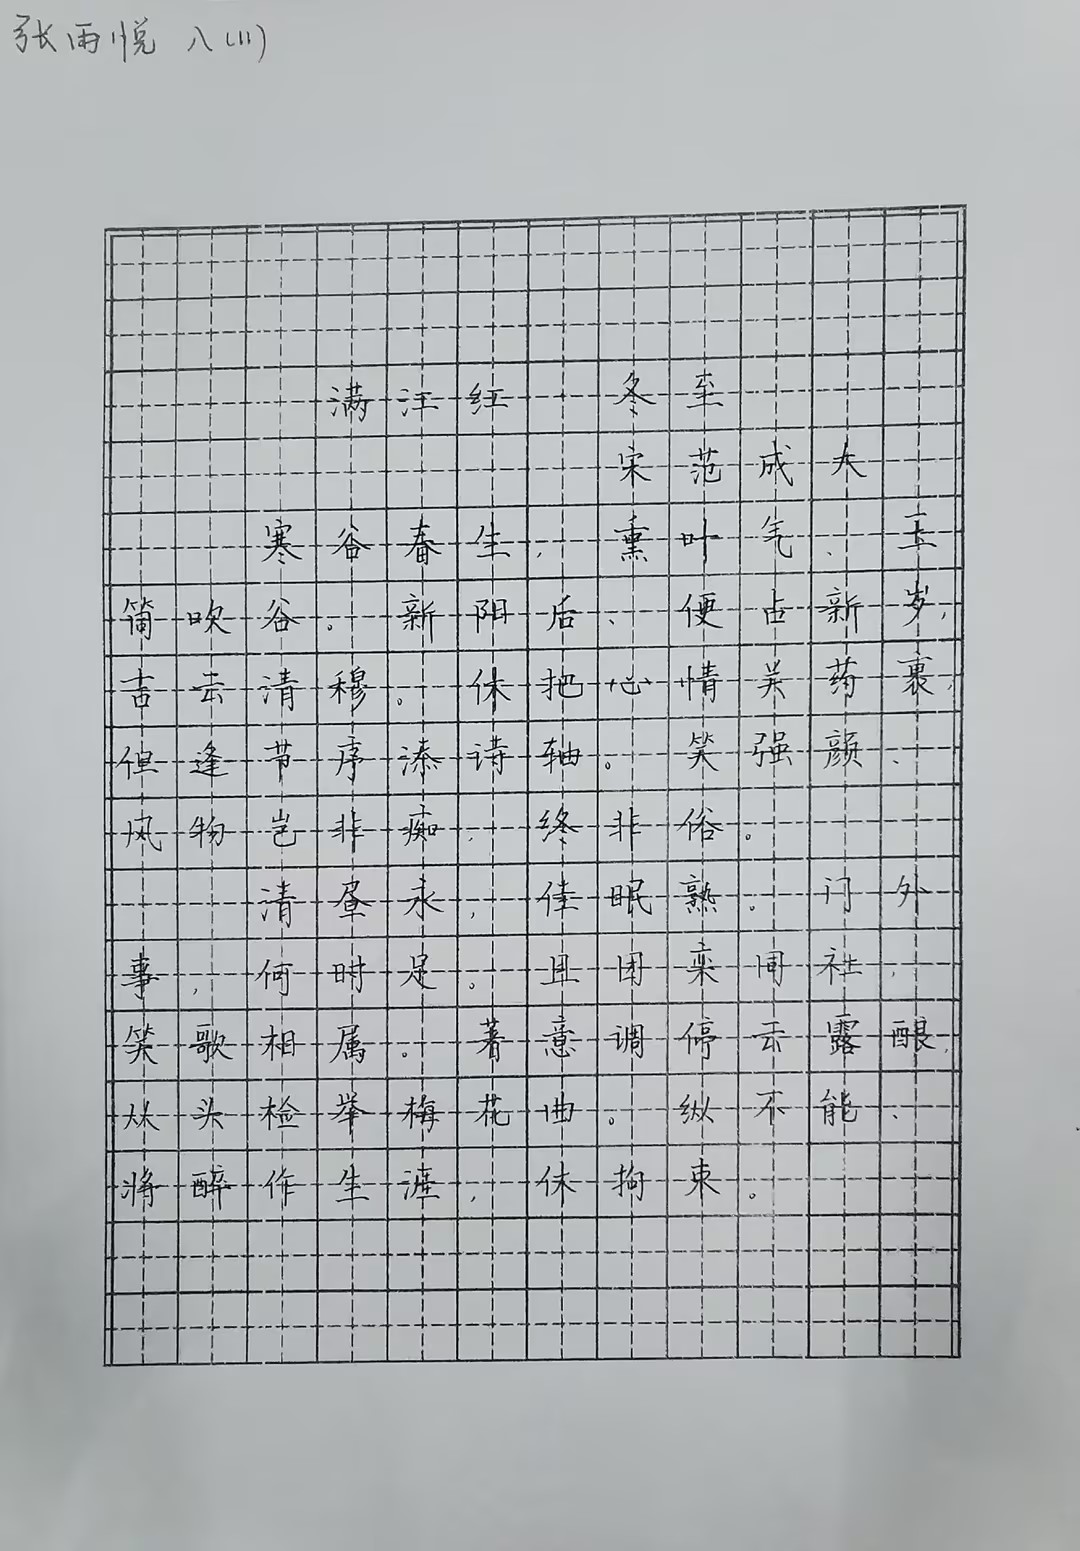 张雨悦 八(11)
满江红 冬至
宋 范成大
寒谷春生，熏叶气、玉
筒吹谷。新阳后、便占新岁，
吉云清穆。休把心情关药裹，
但逢节序添诗轴。笑强颜、
风物岂非痴，终非俗。
清昼永，佳眠熟。门外
事，何时足。且团栾同社，
笑歌相属。著意调停云露酿，
从头检举梅花曲。纵不能、
将醉作生涯，休拘束。